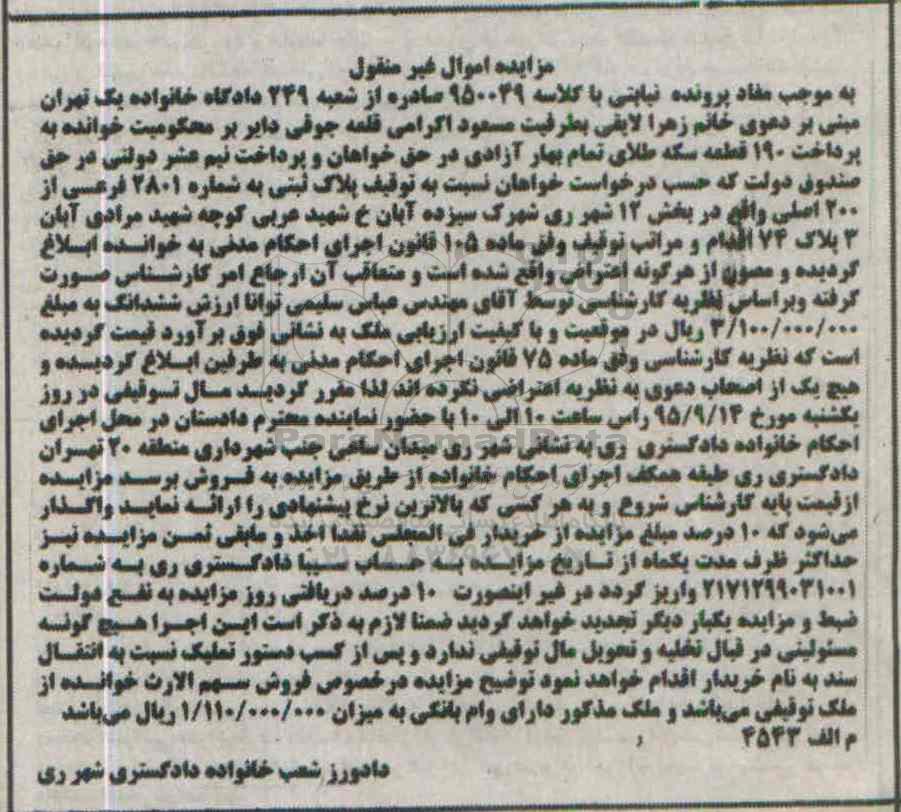 مزایده اموال غیر منقول
به موجب مفاد پرونده نیابتی با کلاسه ۹۵۰۰۴۹ صادره از شعبه ۲۴۹ دادگاه خانواده یک تهران
مبنی بر دعوی خانم زهرا لایقی بطرفیت مسعود اکرامی قلعه جوقی دایر بر محکومیت خوانده به
پرداخت ۱۹۰ قطعه سکه طلای تمام بهار آزادی در حق خواهان و پرداخت نیم عشر دولتی در حق
صندوق دولت که حسب درخواست خواهان نسبت به توقیف پلاک ثبتی به شماره ۲۸۰۱ فرعسی از
۲۰۰ اصلی واقع در بخش ۱۲ شهر ری شهرک سیزده آبان خ شهید عربی کوچه شهید مرادی آبان
۳ پلاک ۷۴ اقدام و مراتب توقیف وفق ماده ۱۰۵ قانون اجرای احکام مدنی به خوانده ابلاغ
گردیده و مصون از هرگونه اعتراض واقع شده است و متعاقب آن ارجاع امر کارشناس صورت
گرفته وبراساس نظریه کارشناسی توسط آقای مهندس عباس سلیمی توانا ارزش ششدانگ به مبلغ
۳/۱۰۰/۰۰۰/۰۰۰ ریال در موقعیت و با کیفیت ارزیابی ملک به نشانی فوق برآورد قیمت گردیده
است که نظریه کارشناسی وفق ماده ۷۵ قانون اجرای احکام مدنی به طرفین ابلاغ گردیده و
هیچ یک از اصحاب دعوی به نظریه اعتراضی نکرده اند لذا مقرر گردید مال توقیفی در روز
یکشنبه مورخ ۹۵/۹/۱۴ راس ساعت ۱۰ الی ۱۰ با حضور نماینده محترم دادستان در محل اجرای
احکام خانواده دادگستری ری به نشانی شهر ری میدان ساعی جنب شهرداری منطقه ۲۰ تهران
دادگستری ری طبقه همکف اجرای احکام خانواده از طریق مزایده به فروش برسد مزایده
ازقیمت پایه کارشناس شروع و به هر کسی که بالاترین نرخ پیشنهادی را ارائه نماید واگذار
می‌شود که ۱۰ درصد مبلغ مزایده از خریدار فی المجلس نقدا اخذ و مابقی ثمن مزایده نیز
حداکثر ظرف مدت یکماه از تاریخ مزایده به حساب سیبا دادگستری ری به شماره
۲۱۷۱۲۹۹۰۳۱۰۰۱ واریز گردد در غیر اینصورت ۱۰ درصد دریافتی روز مزایده به نفع دولت
ضبط و مزایده یکبار دیگر تجدید خواهد گردید ضمنا لازم به ذکر است این اجرا هیچ گونه
مسئولیتی در قبال تخلیه و تحویل مال توقیفی ندارد و پس از کسب دستور تملیک نسبت به انتقال
سند به نام خریدار اقدام خواهد نمود توضیح مزایده درخصوص فروش سهم الارث خوانده از
ملک توقیفی می‌باشد و ملک مذکور دارای وام بانکی به میزان ۱/۱۱۰/۰۰۰/۰۰۰ ریال می‌باشد
م الف ۴۵۴۳
دادورز شعب خانواده دادگستری شهر ری
ParsNamadData